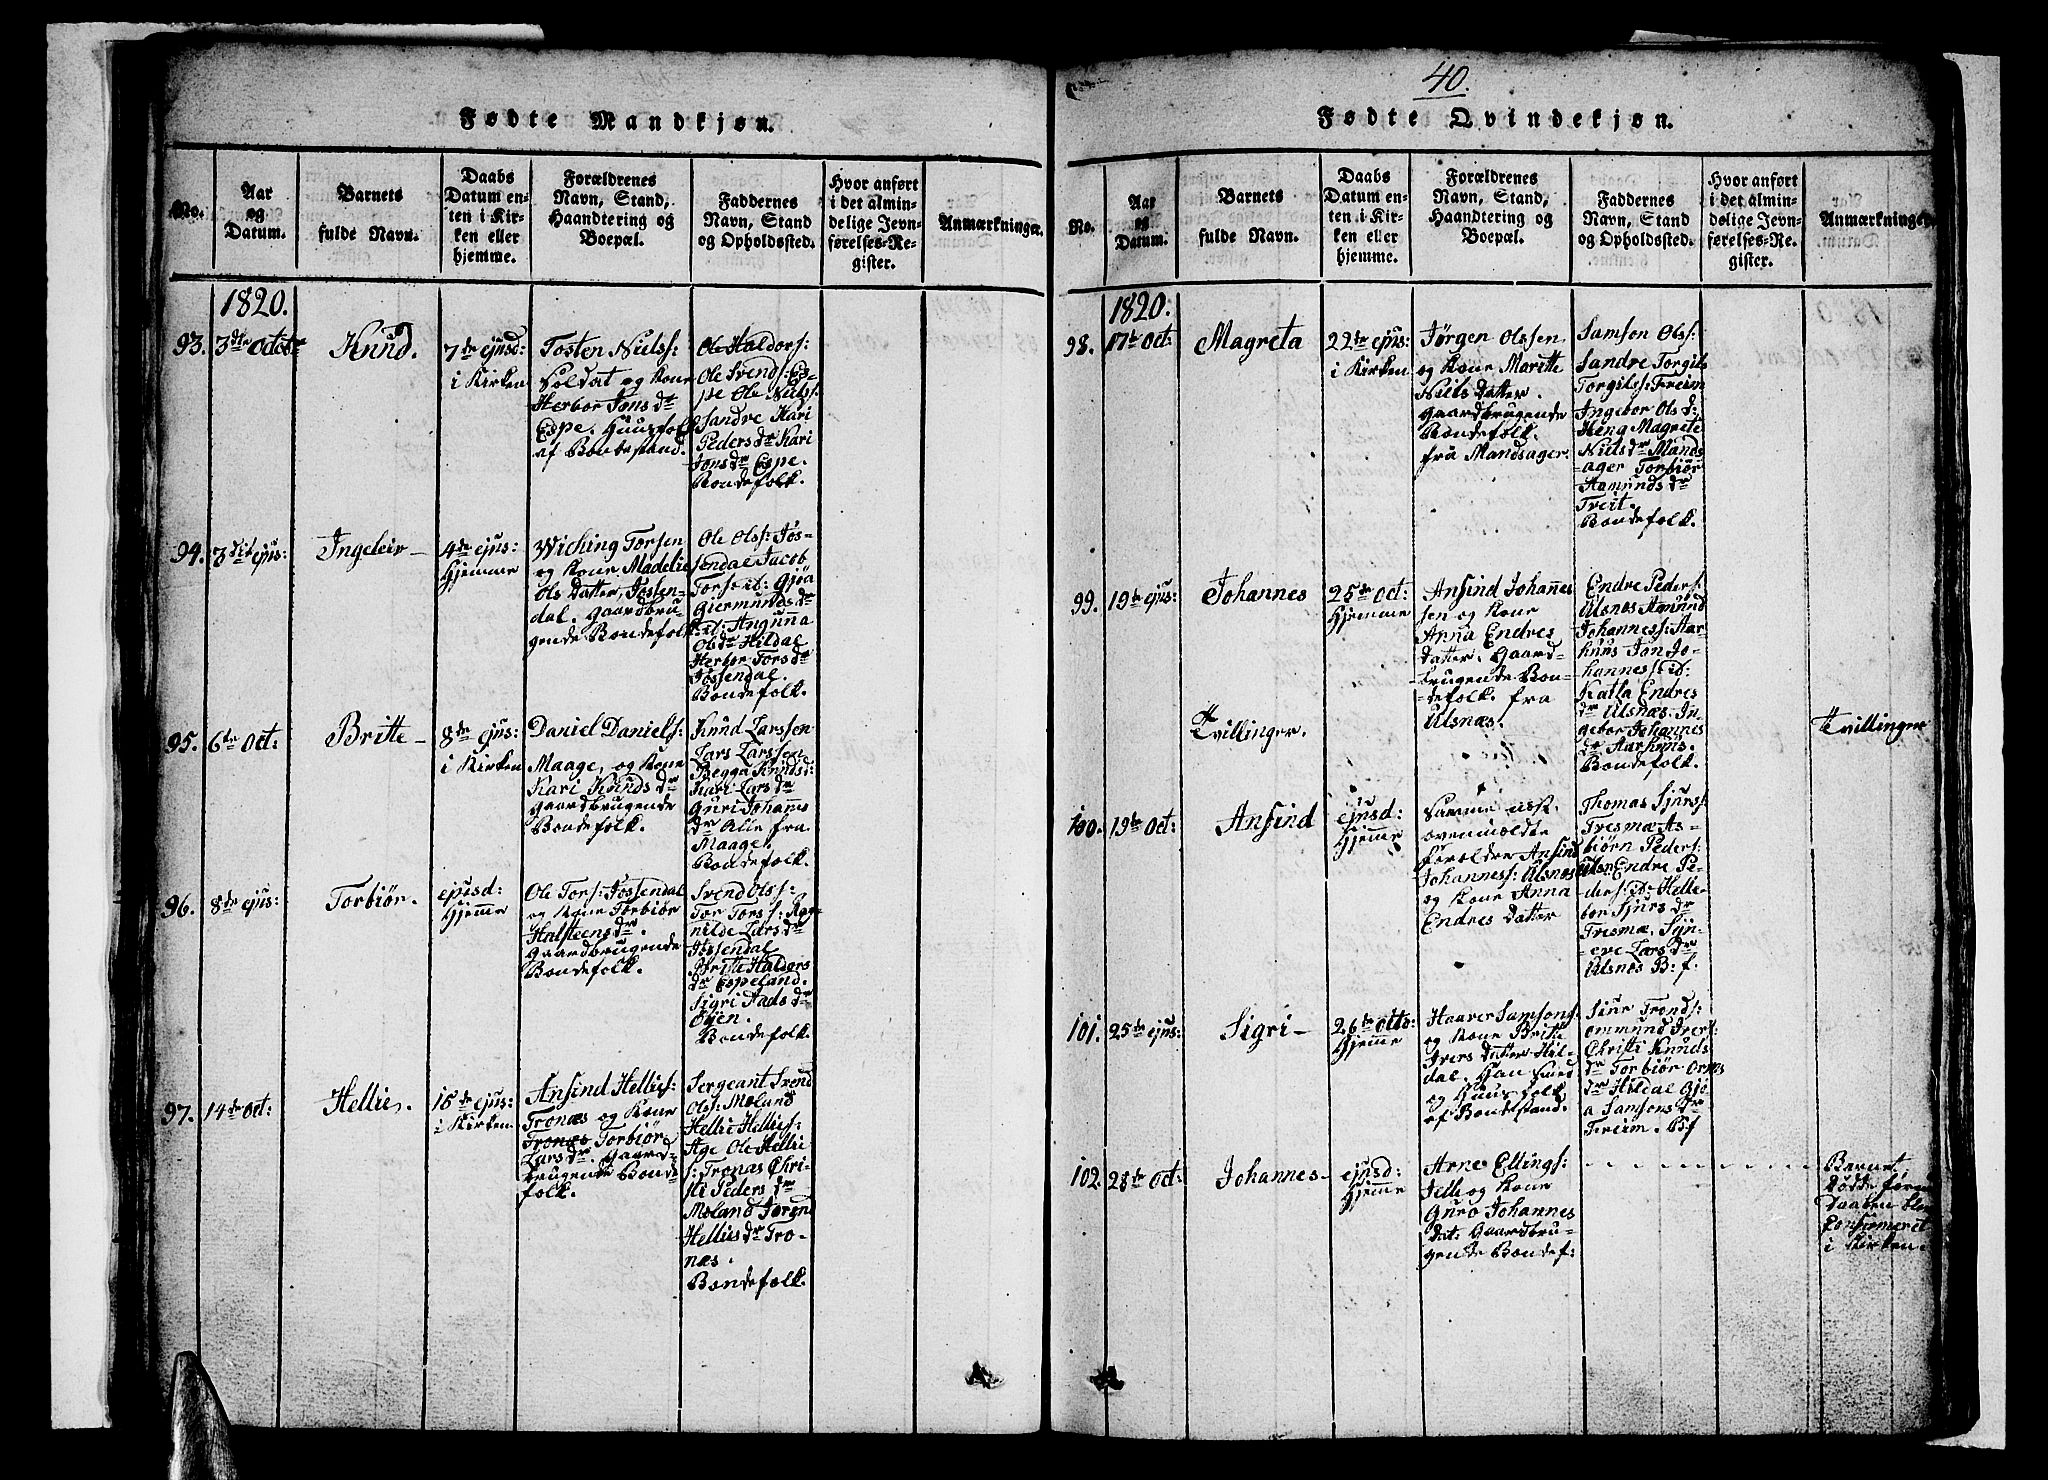 40.
Fødte Mandkjøn.
No.
Aar
og
Datum.
Barnets
fulde Navn.
Daabs
Datum en-
ten i Kir-
ken eller
hjemme.
Forældrenes
Navn, Stand,
Haandtering og
Boepæl.
Faddernes
Navn, Stand
og Opholdssted.
Hvor anført
i det almin-
delige Jevn-
førelses-Re-
gister.
Anmærkninger.
1820.
93.
3de Octobr
Knud.
7de ejusd
i Kirken
Tosten Niels:
Soldat og Kone
Herbor Jons dr
Espe. Huusfolk
af Bondestand.
Ole Haldors:
Ole Svends: Es-
pe Ole Niels:
Sandre Kari
Peders dr Kari
Jons dr Espe.
Bondefolk.
94.
3die ejus:
Ingeleiv
4de ejus:
Hjemme
Wiching Torsen
og Kone Madelie
Ols Datter, Jøsen-
dal. Gaardbru-
gende Bondefolk
Ole Ols: Jøs-
sendal Jacob
Tors: id: Gjøa
Giermunds dr
id: Angunna
Ols dr Hildal
Herbor Tors dr
Jøssendal.
Bondefolk.
95.
6te Oct:
Britte
8de ejus:
i Kirken
Daniel Daniels:
Maage, og Kone
Kari Knuds dr
Gaardbrugende
Bondefolk.
Knud Larssen
Lars Larssen
Begga Knuds d:
Kari Lars dr
Guri Johanns
dr Alle fra
Maage.
Bondefolk.
96.
8de ejus:
Torbiør.
ejusd:
Hjemme
Ole Tors: Jøssendal
og Kone Torbiør
Halsteens dr.
Gaardbrugende
Bondefolk.
Svend Ols:
Tor Tors: Rag-
nilde Lars dr
Jøssendal
Britte Haldors
dr Espeland.
Sigri Aads dr
Øyen.
Bondefolk.
97.
14de Oct:
Hellie.
15de ejus:
i Kirken.
Ansind Hellies:
Tronæs og Kone
Tronæs Torbiør
Lars dr. Gaard-
brugende Bonde
folk.
Sergeant Svend
Ols: Moland
Hellie Hellies:
Age Ole Helli
s: Tronæs Chri-
sti Peders dr
Moland Torend
Hellies dr Tro-
næs.
Bondefolk.
Fødte Qvindekjøn.
No.
Aar
og
Datum.
Barnets
fulde Navn.
Daabs
Datum en-
ten i Kir-
ken eller
hjemme.
Forældrenes
Navn, Stand,
Haandtering og
Boepæl.
Faddernes
Navn, Stand
og Opholdsted.
Hvor anført
i det almin-
delige Jevn-
førelses-Re-
gister.
Anmærkninger.
1820.
98.
17de Oct:
Magreta
22de ejus:
i Kirken
Jørgen Olssen
og Kone Maritte
Niels Datter.
Gaardbrugende
Bondefolk.
fra Mandsager.
Samson Ols:
Sandre Torgils
Torgils: Freim
Ingebor Ols d:
Heng Magrete
Niels dr Mands
ager Torbiør
Aamunds dr
Freit.
Bondefolk.
99.
19de ejus:
Johannes
25de Oct:
Hjemme
Ansind Johannes
sen og Kone
Anna Endres
Datter. Gaard-
brugende Bon-
defolk. fra
Ulsnæs.
Endre Peders:
Ulsnes Amund
Johannes: Aar-
huus Jon Jo-
hannes: id:
Katla Endres
dr Ulsnæs. In-
gebor Johannes
dr Aarhuus.
Bondefolk.
Tvillinger.
Tvillinger
100.
19de Oct:
Ansind
ejusd:
Hjemme
Samme næst
ovenmeldte
Foreldre Ansind
Johannes: Ulsnæs
og Kone Anna
Endres Datter
Thomas Sjurs:
Tresmæ As-
biørn Peders:
Ulsn Endre Pe-
ders: id: Helle-
bor Sjurs dr
Tresmæ, Syn-
neve Lars dr
Ulsnes B: f:
101.
25de ejus:
Sigri
26de Octo:
Hjemme
Haaver Samsons:
og Kone Britte
Ivers Datter Hil-
dal. Han Smed
og Huusfolk
af Bondestand.
Siur Tronds:
ommund Ivers:
Christi Knuds
dr Torbiør Orms
dr Hildal Gjø
a Samsons dr
Freim. Bf
102.
28de Oct:
Johannes
ejusd:
Hjemme
Arne Ellings:
Jelle og Kone
Guro Johannes
Dat: Gaardbru-
gende Bondef:
Barnet
døde førend
Daaben blev
Confirmeret
i Kirken.